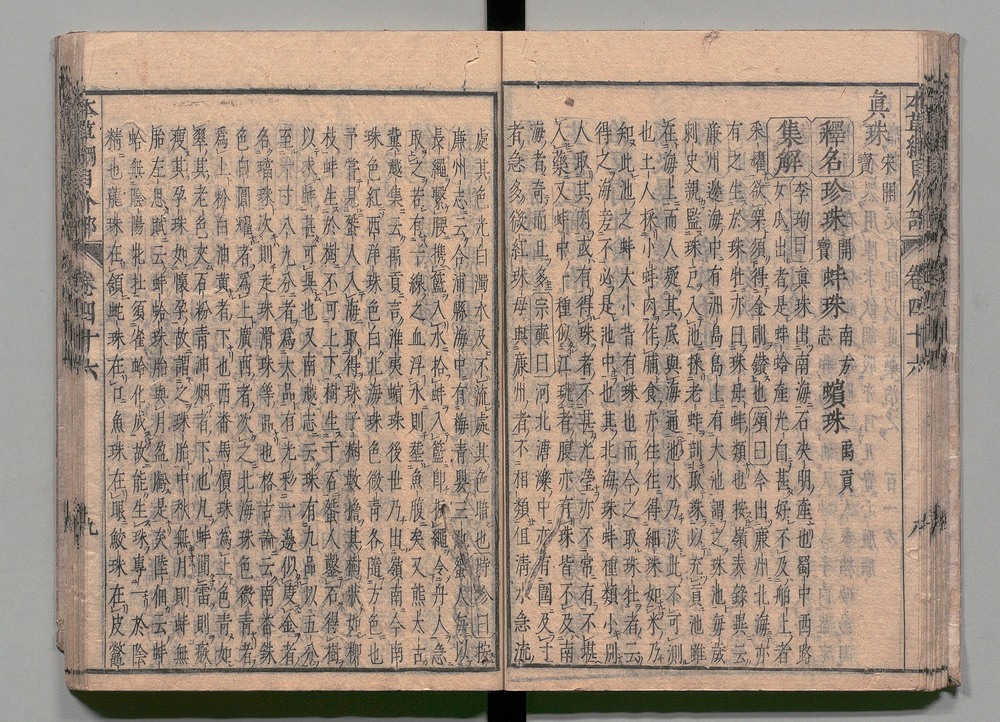 眞珠 宋開寶
釋名 珍珠 開寶 蚌珠 南方志 蠙珠 禹貢
集解 李珣曰眞珠出南海石決明產也蜀中西路
女瓜出者是蚌蛤產光白甚好不及舶上者
采耀欲穿須得金剛鑽也頌曰今出廉州北海亦
有之生於珠牡亦曰珠母蚌類也按嶺表錄異云
廉州邊海中有洲島島上有大池謂之珠池每歲
刺史親監珠戸入池采老蚌剖取珠以充貢池雖
在海上而人疑其底與海通池水乃淡此不可測
也土人采小蚌肉作脯食亦往往得細珠如米乃
知此池之蚌大小皆有珠也而今之取珠牡者云
得之海旁不必是池中也其北海珠蚌種類小別
人取其肉或有得珠者不甚光瑩亦不常有不堪
入藥又蚌中一種似江珧者腹亦有珠皆不及南
海者奇而且多宗奭曰河北溏濼中亦有圍及寸
者色多微紅珠母與廉州者不相類但清水急流
處其色光白濁水及不流處其色暗也時珍曰按
廉州志云合浦縣海中有梅青嬰三池蜑人每以
長繩繫腰攜籃入水拾蚌入籃即振繩令舟人急
取之若有一線之血浮水則葬魚腹矣又熊太古
冀越集云禹貢言淮夷蠙珠後世乃出嶺南今南
珠色紅西洋珠色白北海珠色微青各隨方色也
予嘗見蜑人入海取得珠子樹數擔其樹狀如柳
枝蚌生於樹不可上下樹生于石蜑人鑿石得樹
以求蚌甚可異也又南越志云珠有九品以五分
至一寸八九分者爲大品有光彩一邊似度金者
名璫珠次則走珠滑珠等品也格古論云南番珠
色白圓耀者爲上廣西者次之北海珠色微青者
爲上粉白油黃者下也西番馬價珠爲上色青如
翠其老色夾石粉青油烟者下也凡蚌聞雷則㾭
瘦其孕珠如懷孕故謂之珠胎中秋無月則蚌無
胎左思賦云蚌蛤珠胎與月盈虧是矣陸佃云蚌
蛤無陰陽牝牡須雀蛤化成故能生珠專一於陰
精也龍珠在頷蛇珠在口魚珠在眼鮫珠在皮鱉
本草綱目介部 卷四十六
九